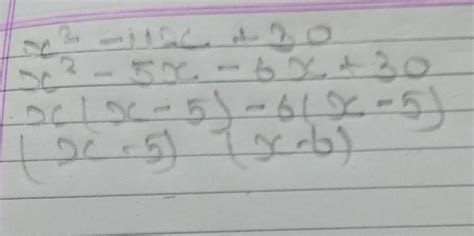 x² - 11x + 30
x² - 5x - 6x + 30
x(x - 5) - 6(x - 5)
(x - 5) (x - 6)